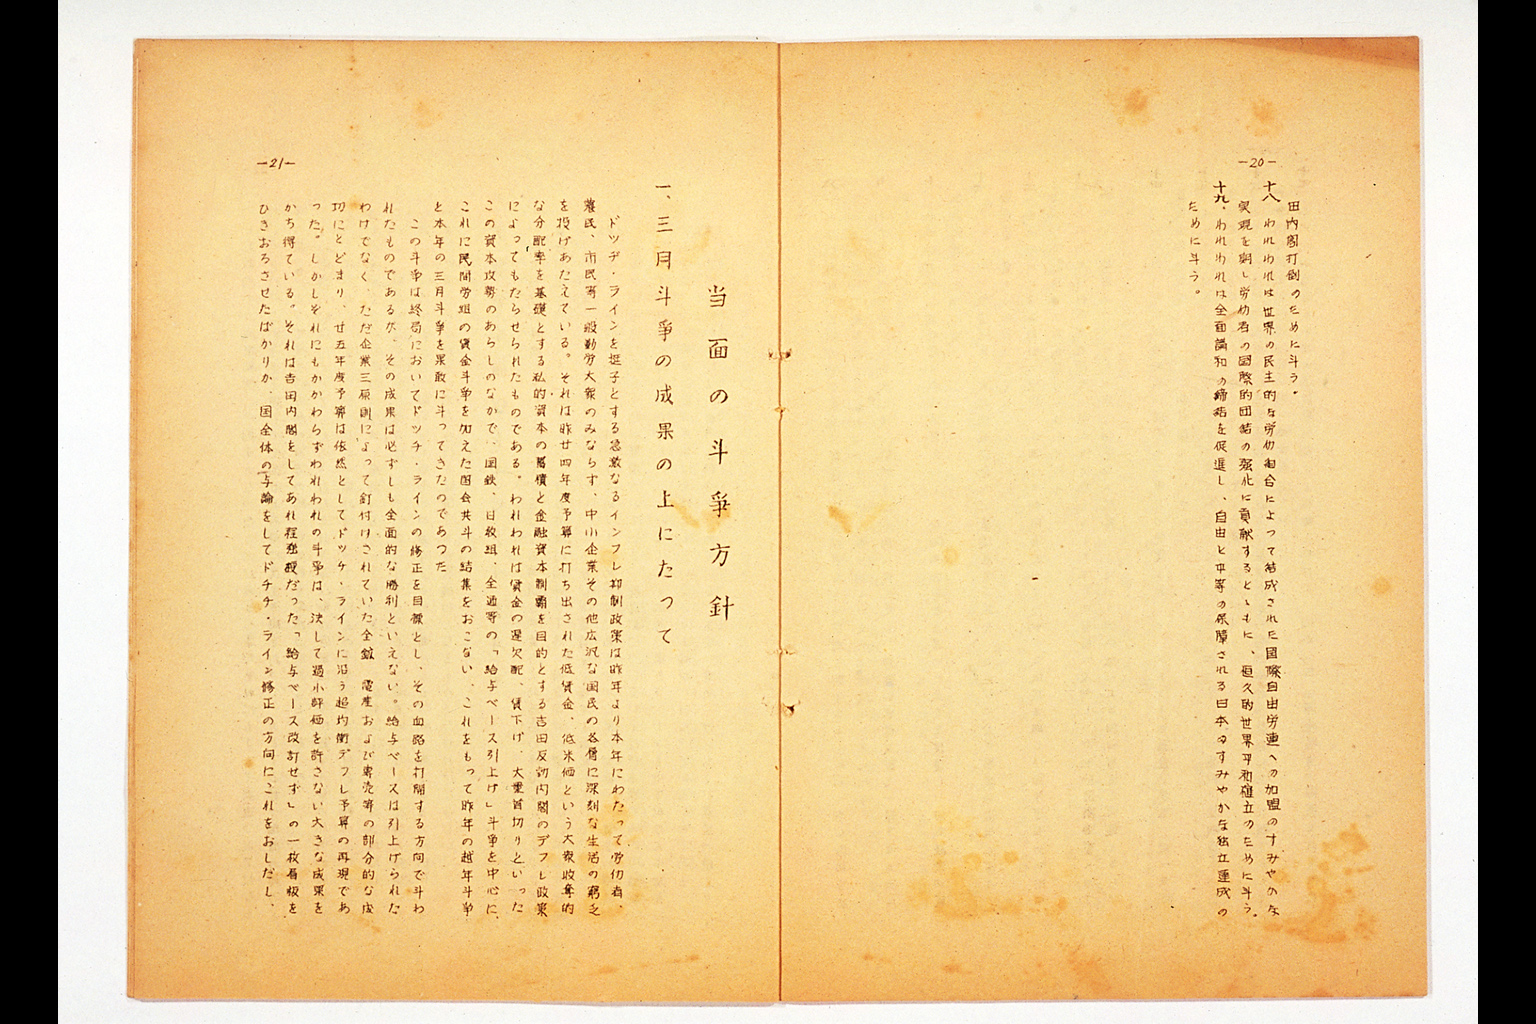 -20-
田内閣打倒のために斗う。
十八、われわれは世界の民主的な労仂組合によって結成された国際自由労連への加盟のすみやかな
実現を期し労仂者の国際的団結の強化に貢献するとゝもに、恒久的世界平和確立のために斗う。
十九、われわれは全面講和の締結を促進し、自由と平等の保障される日本のすみやかな独立達成の
ために斗う。
-21-
当面の斗争方針
一、三月斗争の成果の上にたって
ドッヂ・ラインを挺子とする急激なるインフレ抑制政策は昨年より本年にわたって労仂者、
農民、市民等一般勤労大衆のみならず、中小企業その他広汎な国民の各層に深刻な生活の窮乏
を投げあたえている。それは昨廿四年度予算に打ち出された低賃金、低米価という大衆収奪的
な分配率を基礎とする私的資本の蓄積と金融資本制覇を目的とする吉田反動内閣のデフレ政策
によってもたらせられたものである。われわれは賃金の遅欠配、賃下げ、大量首切りといった
この資本攻勢のあらしのなかで、国鉄、日教組、全逓等の「給与ベース引上げ」斗争を中心に、
これに民間労組の賃金斗争を加えた国会共斗の結集をおこない、これをもって昨年の越年斗争
と本年の三月斗争を果敢に斗ってきたのであつた
この斗争は終局においてドッチ・ラインの修正を目標とし、その血路を打開する方向で斗わ
れたものであるが、その成果は必ずしも全面的な勝利といえない。給与ベースは引上げられた
わけでなく、ただ企業三原則によって釘付けされていた全鉱 電産および専売等の部分的な成
功にとどまり、廿五年度予算は依然としてドッチ・ラインに沿う超均衡デフレ予算の再現であ
った。しかしそれにもかかわらずわれわれの斗争は、決して過小評価を許さない大きな成果を
かち得ている。それは吉田内閣をしてあれ程強硬だった「給与ベース改訂せず」の一枚看板を
ひきおろさせたばかりか、国全体の与論をしてドチチ・ライン修正の方向にこれをおしだし、